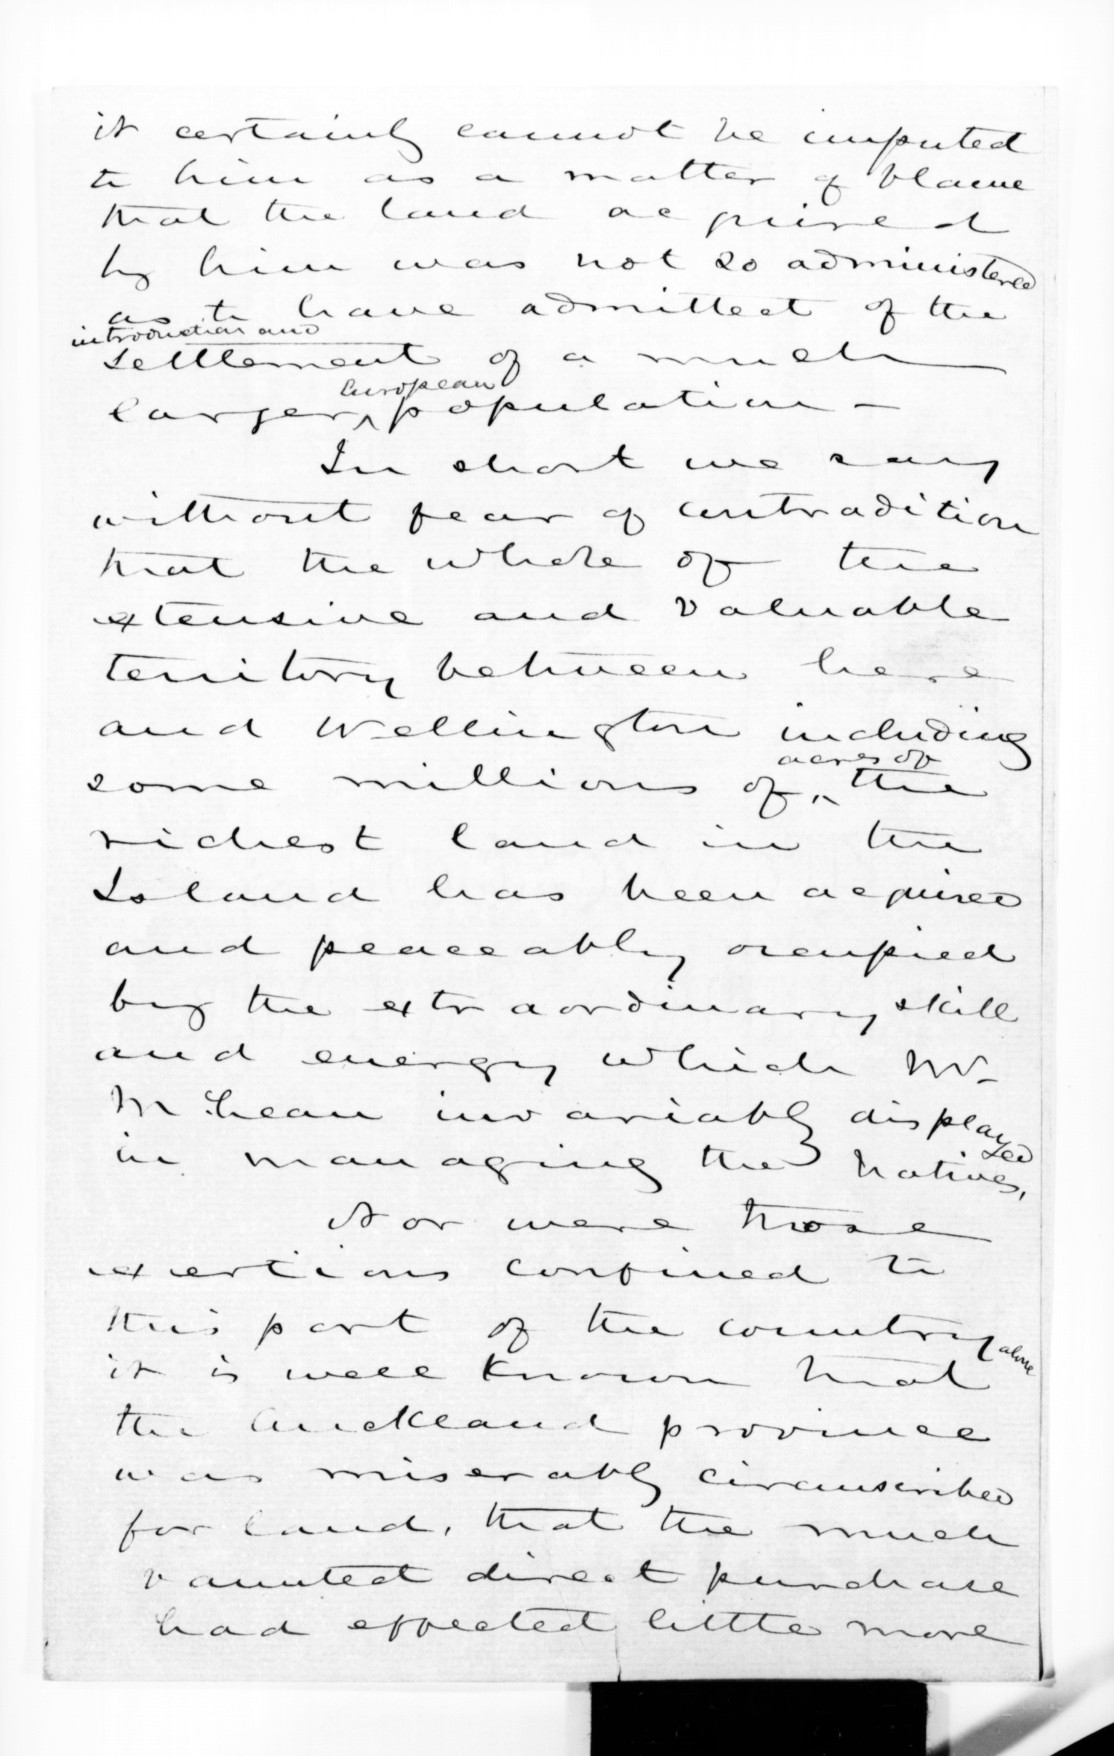 it certainly cannot be imputed
to him as a matter of blame
that the land acquired
by him was not so administered
as to have admitted of the
introduction and
settlement of a much
European
larger ^ population -
In short we say
without fear of contradition
that the whole of the
extensive and valuable
territory between here
and Wellington including
acres of
some millions of ^ the
richest land in the
Island has been acquired
and peaceably occupied
by the extraordinary skill
and energy which Mr
McLean invariably displayed
in managing the Natives,
Nor were those
exertions confined to
this part of the country alone
it is well known that
the Auckland province
was miserably circumscribed
for land, that the much
vaunted direct purchase
had effected little more